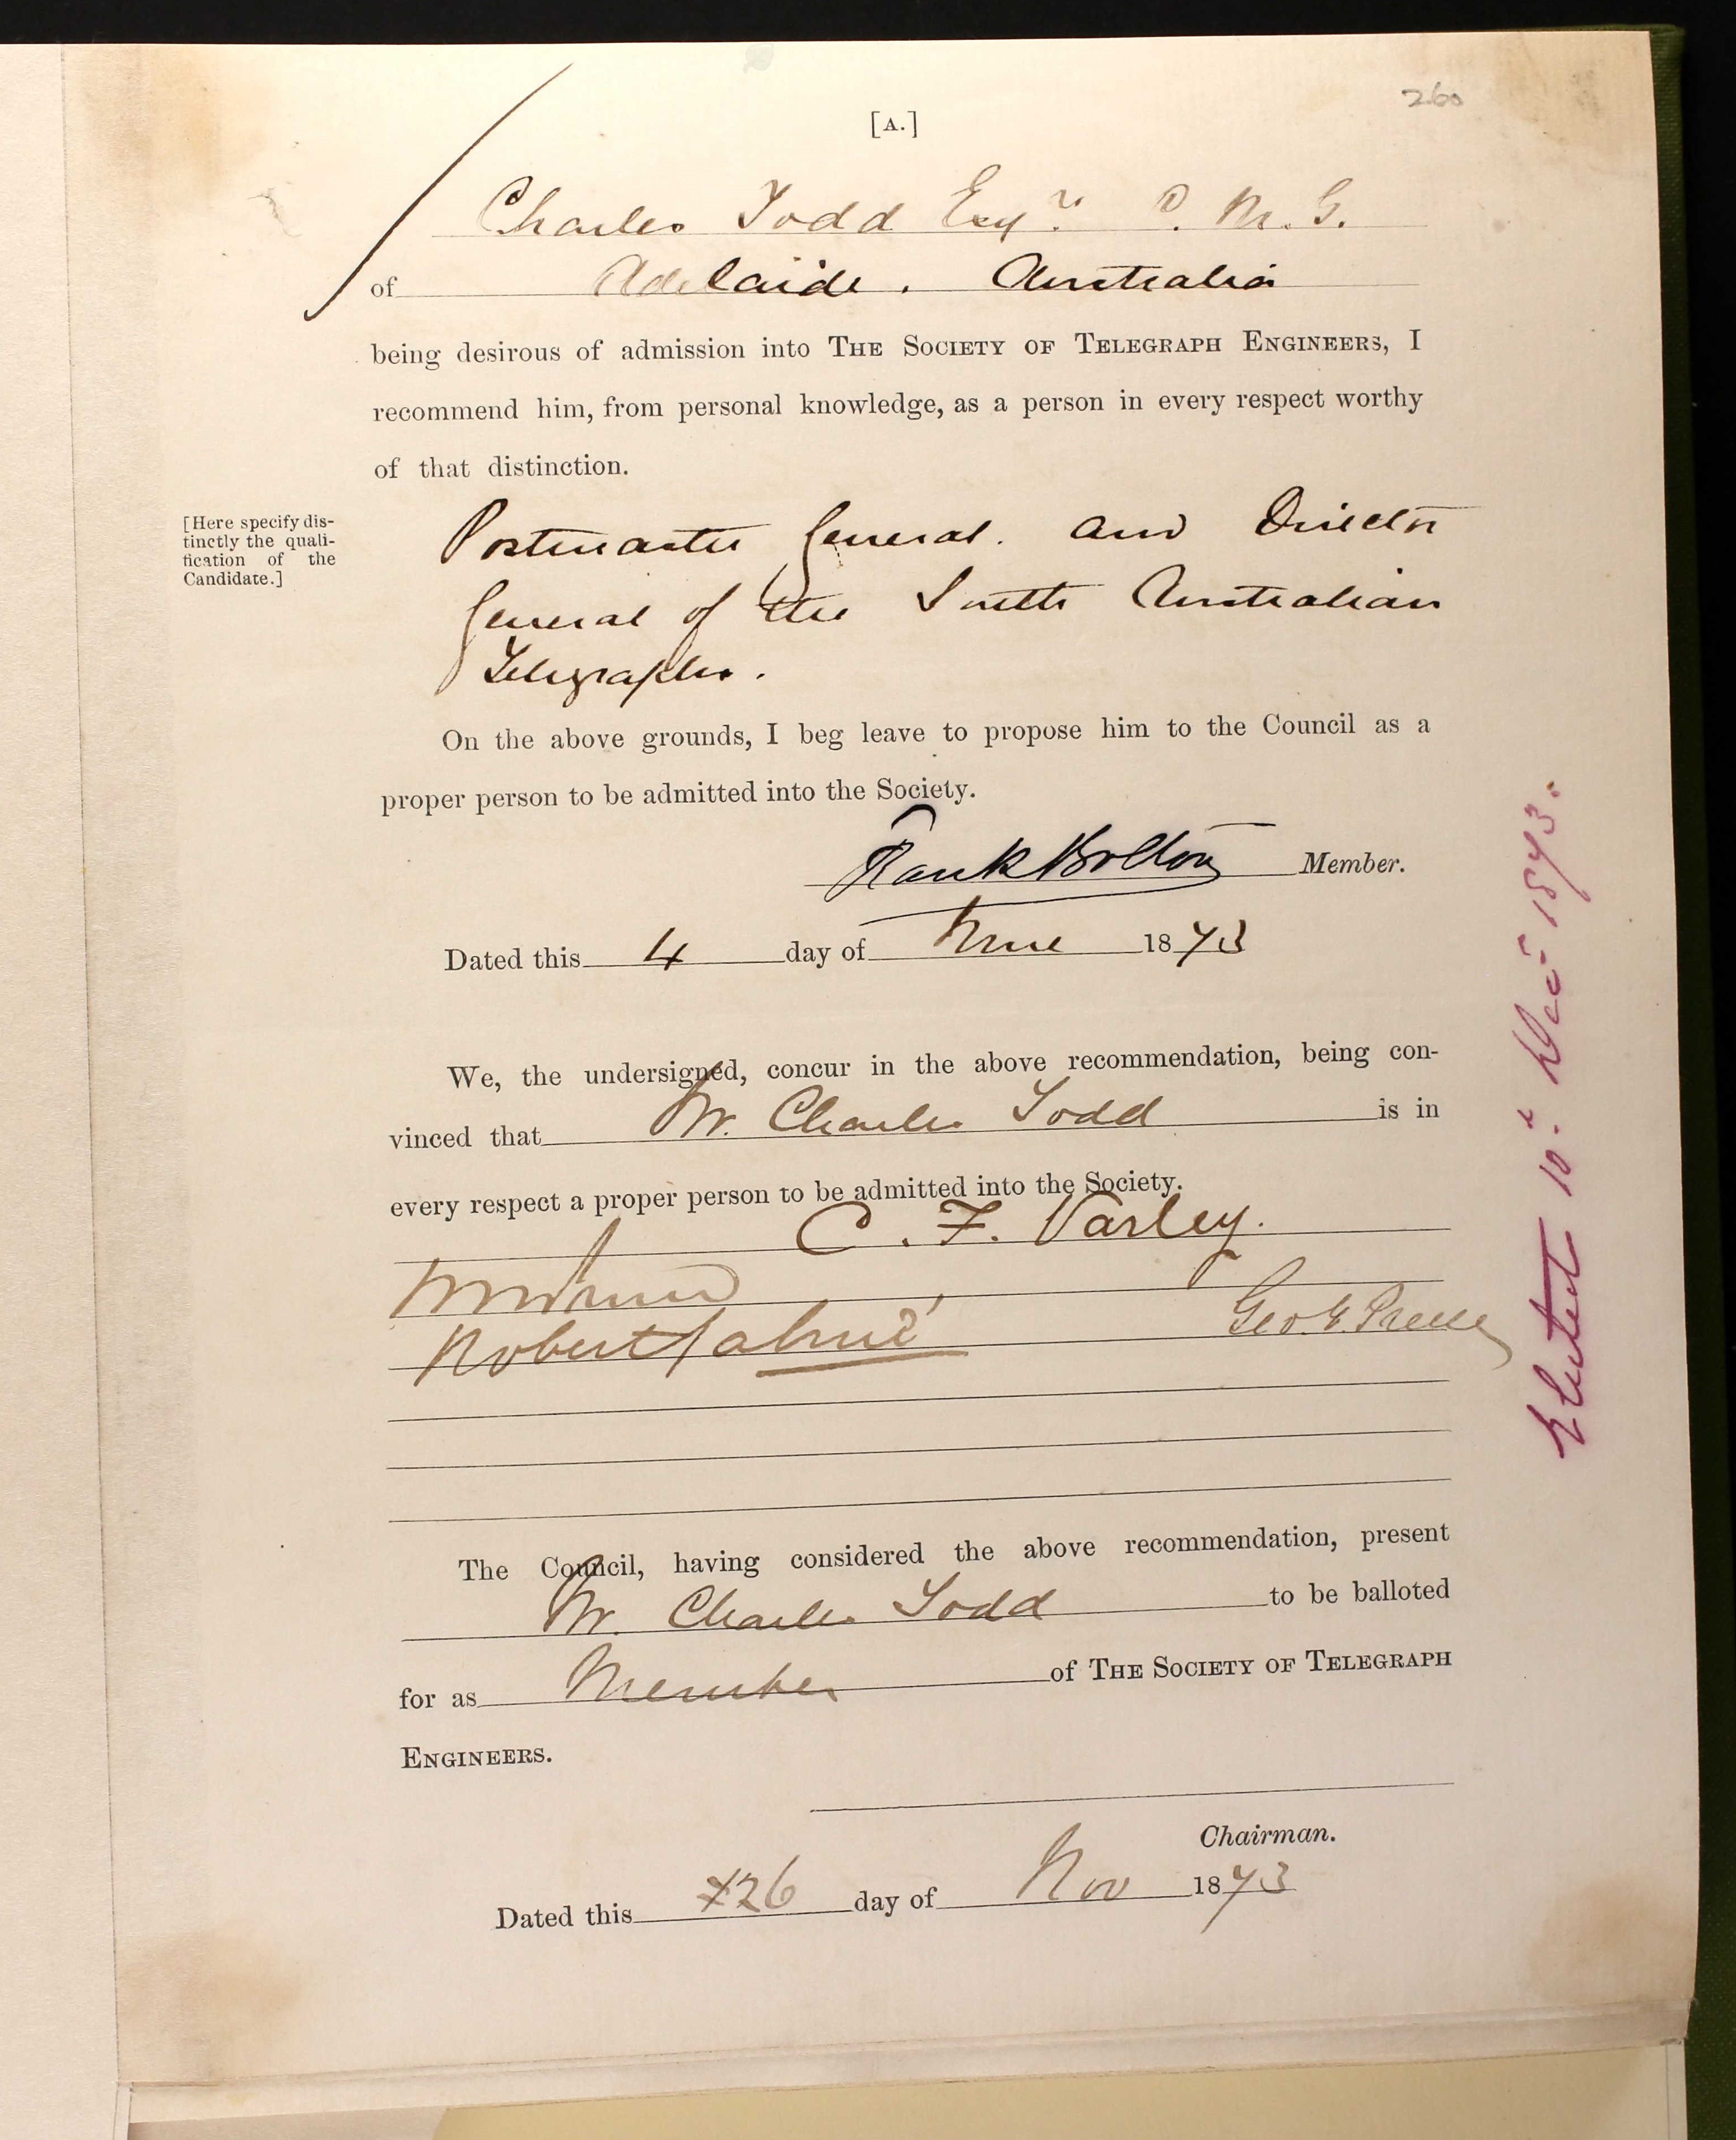 260
[A.]
Charles Todd Esqr. P. M. G.
of Adelaide. Australia
being desirous of admission into THE SOCIETY OF TELEGRAPH ENGINEERS, I
recommend him, from personal knowledge, as a person in every respect worthy
of that distinction.
[Here specify dis-
tinctly the quali-
fication of the
Candidate.]
Postmaster General. and Director
General of the South Australian
Telegraphs.
On the above grounds, I beg leave to propose him to the Council as a
proper person to be admitted into the Society.
Frank Bolton Member.
Dated this 4 day of 1873
We, the undersigned, concur in the above recommendation, being con-
vinced that Mr. Charles Todd is in
every respect a proper person to be admitted into the Society.
C. F. Varley.
Robert Sabine
Geo. E. Preece
The Council, having considered the above recommendation, present
Mr. Charles Todd to be balloted
for as Member of THE SOCIETY OF TELEGRAPH
ENGINEERS.
Chairman.
Dated this 26 day of Nov 1873
Elected 10th Dec 1873.